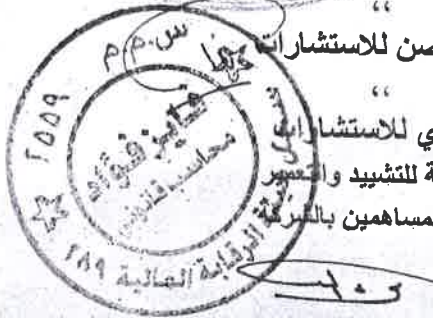 ،،
صن للاستشارات
،،
ي للاستشارات
ة للتشييد والتعمير
مساهمين بالشركة
س.م.م
٢٥٥٩
فايز فؤاد
محاسب قانوني
سجل هيئة الرقابة المالية ٢٨٩